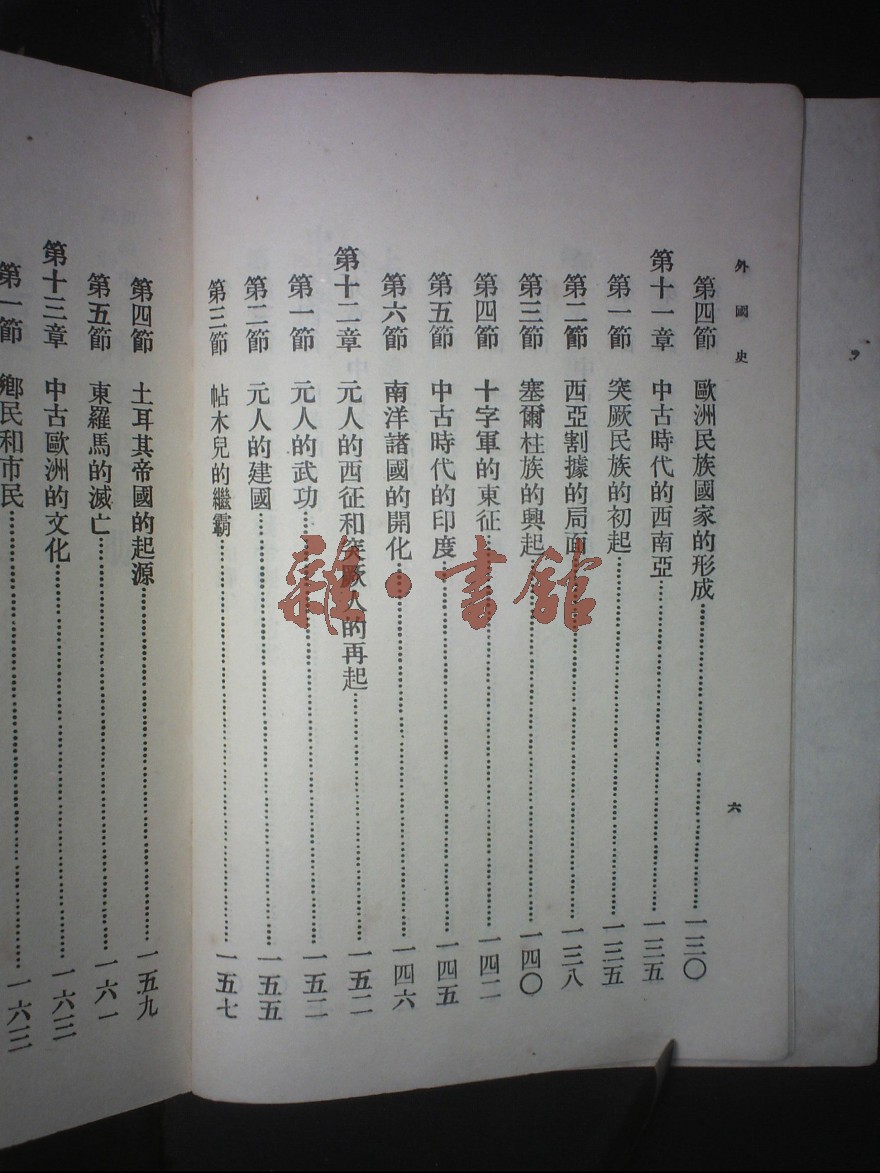 外國史
六
第四節 歐洲民族國家的形成……一三〇
第十一章 中古時代的西南亞……一三五
第一節 突厥民族的初起……一三五
第二節 西亞割據的局面……一三八
第三節 塞爾柱族的興起……一四〇
第四節 十字軍的東征……一四二
第五節 中古時代的印度……一四五
第六節 南洋諸國的開化……一四六
第十二章 元人的西征和突厥人的再起……一五二
第一節 元人的武功……一五二
第二節 元人的建國……一五五
第三節 帖木兒的繼霸……一五七
第四節 土耳其帝國的起源……一五九
第五節 東羅馬的滅亡……一六一
第十三章 中古歐洲的文化……一六三
第一節 鄉民和市民……一六三
雜·書館